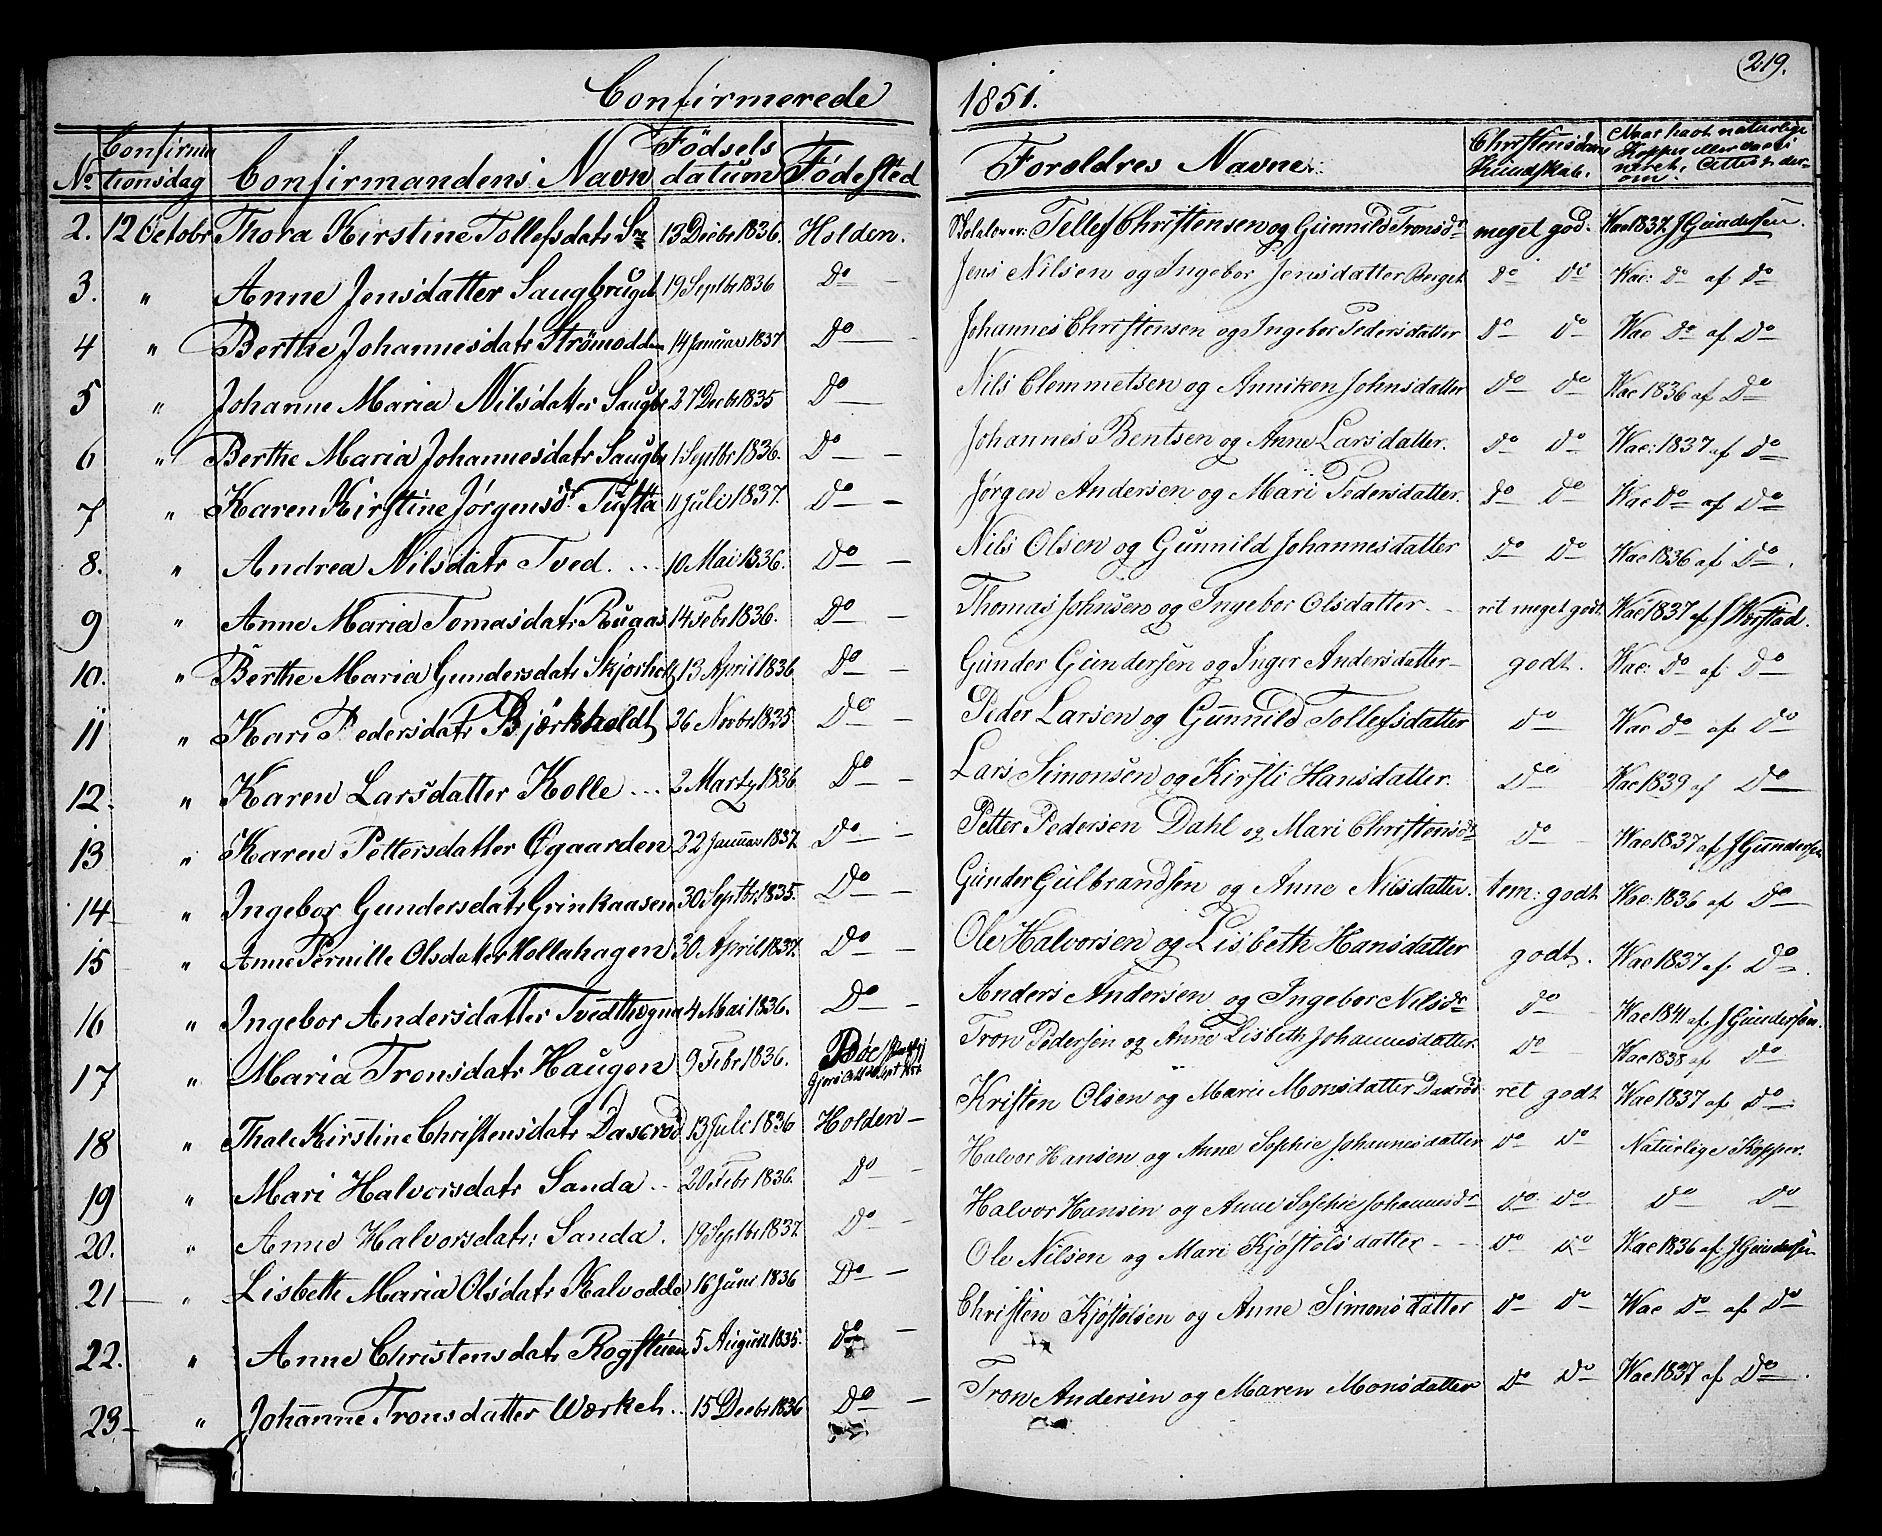 Confirmerede 1851.
219.
No. Confirmationsdag Confirmandens Navn Fødsels datum Fødested Foroldres Navne. Christendoms Kundskab. Naar havt naturlige Kopper eller vacci neret. Attest der om.
2. 12 Octobr Thora Kirstine Tollefsdatr Sre 13 Decbr 1836. Holden. Skolalærer Tellef Christensen og Gunnild Tronsdr meget god. Vac 1837. J Gundersen.
3. " Anne Jensdatter Saugbruget 19 Septbr 1836 Do Jens Nilsen og Ingebor Jensdatter Berget Do Do Vac: Do af Do
4 " Berthe Johannesdatr Strømodden 14 Januar 1837 Do Johannes Christensen og Ingebor Pedersdatter Do Do Vac Do af Do
5 " Johanne Maria Nilsdatter Saugbr 27 Decbr 1835 Do Nils Clemmetsen og Anniken Johnsdatter Do Do Vac 1836 af Do
6 " Berthe Maria Johannesdatr Saugbr 1 Septbr 1836. Do Johannes Bentsen og Anne Larsdatter. Do Do Vac: 1837 af Do
7 " Karen Kirstine Jørgensdr Tufta 11 Juli 1837. Do Jørgen Andersen og Mari Pedersdatter. Do Do Vac Do af Do
8. " Andrea Nilsdatr Tved. 10 Mai 1836. Do Nils Olsen og Gunnild Johannesdatter Do Do Vac 1836 af Do
9 " Anne Maria Tomasdatr Rugaas 14 Febr 1836. Do Thomas Johnsen og Ingebor Olsdatter ret meget godt. Vac 1837 af
10. " Berthe Maria Gundersdatr Skjorholt 13 April 1836 Do Gunder Gundersen og Inger Andersdatter godt. Vac: Do af Do
11 " Kari Pedersdatr Bjørkholdt 26 Novbr 1835 Do Peder Larsen og Gunnild Tollefsdatter Do Vac Do af Do
12 " Karen Larsdatter Kolle 2 Marty 1836 Do Lars Simonsen og Kirsti Hansdatter. Do Vac 1839 af Do
13 " Karen Pettersdatter Øgaarden 22 Januar 1837. Do Petter Pedersen Dahl og Mari Christensdr Do Vac 1837 af J Gundersen
14 " Ingebor Gundersdatr Grinkaasen 30 Septbr 1835. Do Gunder Gulbrandsen og Anne Nilsdatter. tem: godt Vac: 1836 af Do
15 " Anne Pernille Olsdatter Hollahagen 30 April 1837. Do Ole Halvorsen og Lisbeth Hansdatter godt. Vac 1837 af Do
16 " Ingebor Andersdatter Tvedthogna 4 Mai 1836. Do Anders Andersen og Ingebor Nilsdr Do Vac 1841 af J Gundersen.
17 " Maria Tronsdatr Haugen 9 Febr 1836. Bøe Tron Pedersen og Anne Lisbeth Johannesdatter. Do Vac 1838 af Do
18 " Thale Kirstine Christensdatr Dasrød 13 Juli 1836 Holden Kristen Olsen og Marie Monsdatter Dasrød ret godt Vac 1837 af Do
19 " Mari Halvorsdatr Sanda 20 Febr 1836. Do Halvor Hansen og Anne Sophie Johannesdatter Do Do Naturlige Kopper.
20. " Anne Halvorsdatr: Sanda. 19 Septbr 1837 Do Halvor Hansen og Anne Sophie Johannesdr Do Do Do Do
21 " Lisbeth Maria Olsdatr Kalvodde 16 Juni 1836 Do Ole Nilsen og Mari Kjøstolsdatter Do Do Vac 1836 af J Gundersen
22. " Anne Christensdatr Rogstuen 5 August 1835. Do Christen Kjøstolsen og Anne Simonsdatter Do Do Vac Do af Do
23. " Johanne Tronsdatter Værket 15 Decbr 1836 Do Tron Andersen og Maren Monsdatter Do Do Vac 1837 af Do